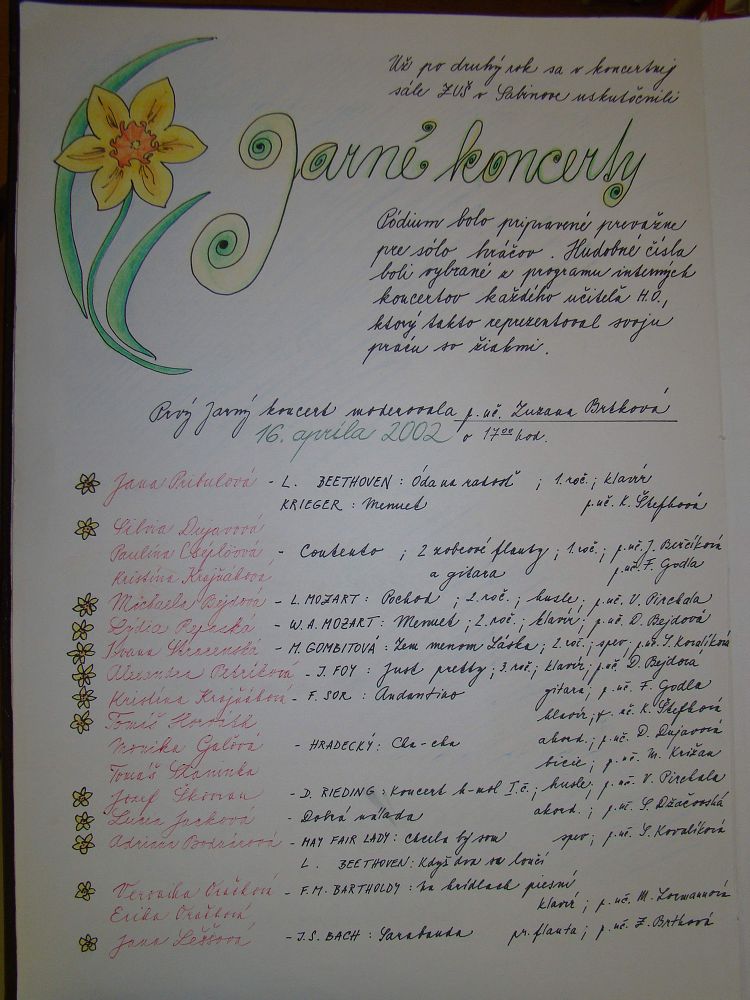 Už po druhý rok sa v koncertnej
sále ZUŠ v Sabinove uskutočnili
Jarné koncerty
Pódium bolo pripravené prevažne
pre sólo hráčov. Hudobné čísla
boli vybrané z programu interných
koncertov každého učiteľa H.O.,
ktorý takto reprezentoval svoju
prácu so žiakmi.
Prvý Jarný koncert moderovala p. uč. Zuzana Brtková
16. apríla 2002 o 17⁰⁰ hod.
Jana Pribulová - L. BEETHOVEN: Óda na radosť ; 1. roč.; klavír
KRIEGER: Menuet p. uč. K. Štefková
Silvia Dujavová
Paulína - Contento ; 2 zobcové flauty ; 1. roč.; p. uč. J. Berčíková
Kristína Krajňáková a gitara p. uč. F. Godla
Michaela Bejdová - L. MOZART: Pochod ; 2. roč.; husle; p. uč. V. Pirchala
Lýdia - W. A. MOZART: Menuet ; 2. roč.; klavír; p. uč. D. Bejdová
Ivana - M. GOMBITOVÁ: Zem menom Láska ; 2. roč.; spev; p. uč. S. Kovalíková
Alexandra Petríková - J. FOY: Just pretty ; 3. roč.; klavír; p. uč. D. Bejdová
Kristína Krajňáková - F. SOR: Andantino gitara; p. uč. F. Godla
Tomáš Horváth klavír; p. uč. K. Štefková
Monika Gaľová - HRADECKÝ: Cha-cha akord.; p. uč. D. Dujavová
Tomáš bicie; p. uč. M. Križan
Jozef Škovran - D. RIEDING: Koncert h-mol I. č.; husle; p. uč. V. Pirchala
Lucia Jacková - Dobrá nálada akord.; p. uč. S. Džačovská
Adriana Bodnárová - MAY FAIR LADY: Chcela by som spev; p. uč. S. Kovalíková
L. BEETHOVEN: Když dva se loučí
Veronika Oračková - F. M. BARTHOLDY: Na krídlach piesní
Erika Oračková klavír; p. uč. M. Lormannová
Jana Leššová - J. S. BACH: Sarabanda pr. flauta; p. uč. Z. Brtková